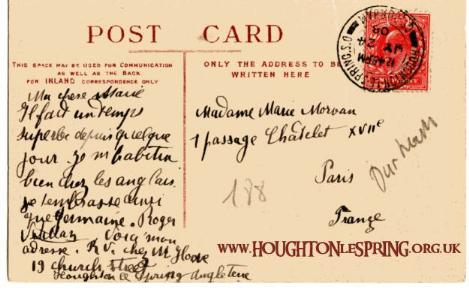 POST CARD
THIS SPACE MAY BE USED FOR COMMUNICATION
AS WELL AS THE BACK
FOR INLAND CORRESPONDENCE ONLY
ONLY THE ADDRESS TO BE
WRITTEN HERE
HOUGHTON-LE-SPRING S.O.
Ma chere Marie
Il fait un temps
superbe depuis quelque
jour. je m'habitue
bien chez les anglais.
je t'embrasse ainsi
que Germaine. Roger
Voici mon
adresse. R.V. chez M.
19 church street
Houghton le Spring Angleterre
Madame Marie Morvan
1 passage Châtelet XVIIe
Paris
France
188
Our
www.HOUGHTONLESPRING.ORG.UK